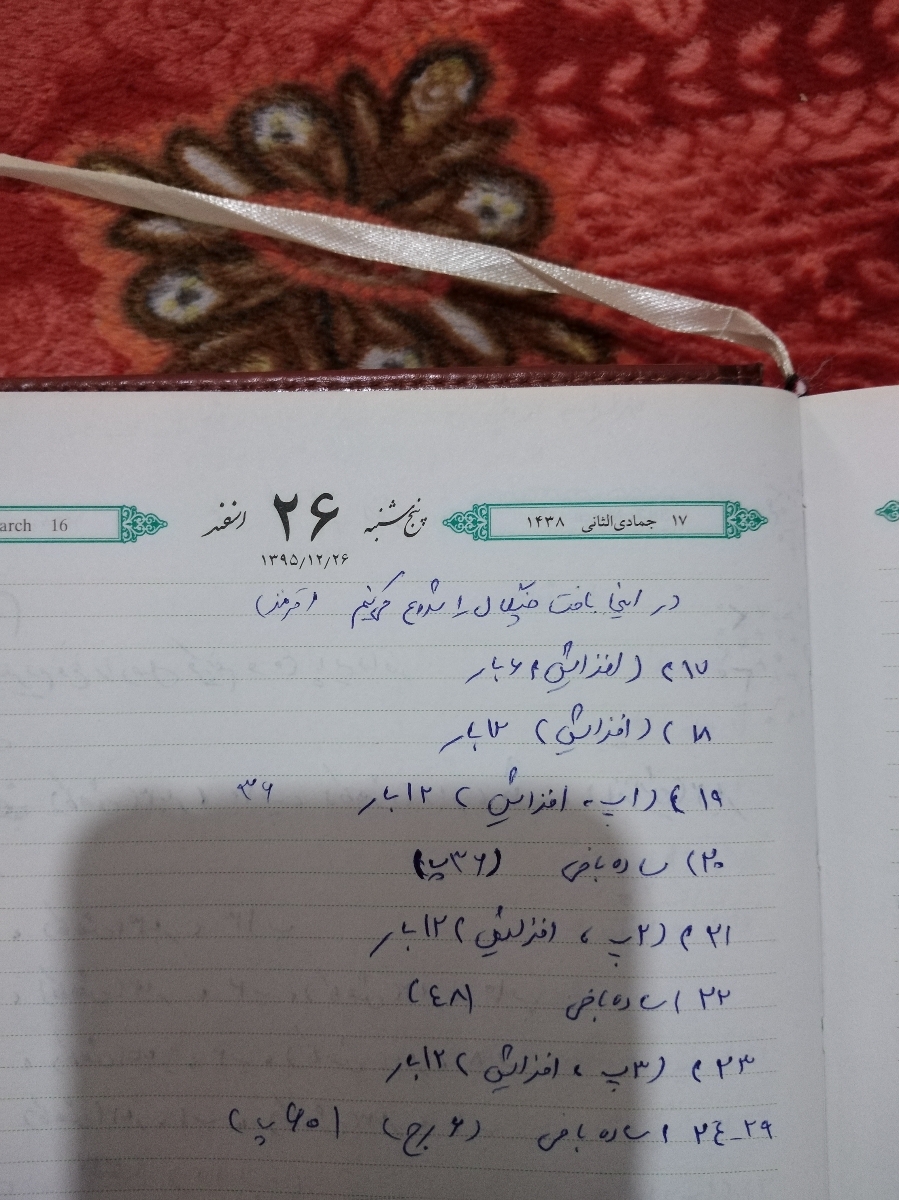 ۱۷ جمادی‌الثانی ۱۴۳۸
پنج‌شنبه ۲۶ اسفند
arch 16
۱۳۹۵/۱۲/۲۶
در اینجا بافت را شروع میکنیم (قرمز)
۱۷) (افزایش) ۶ بار
۱۸) (افزایش) ۱۲ بار
۱۹) (۱پ، افزایش) ۱۲ بار ۳۶
۲۰) ساده بافی (۳۶پ)
۲۱) (۲پ، افزایش) ۱۲ بار
۲۲) ساده بافی (٤۸)
۲۳) (۳پ، افزایش) ۱۲ بار
۲٤-۲۹) ساده بافی (۶ رج) (۶۰پ)